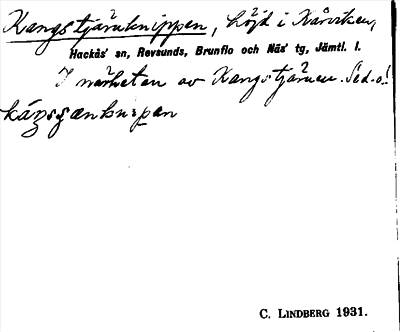 Kangstjärnknippen, höjd i Kårviken,
Hackås' sn, Revsunds, Brunflo och Näs' tg, Jämtl. l.
I närheten av Kangstjärnen. Se d.o!
C. LINDBERG 1931.